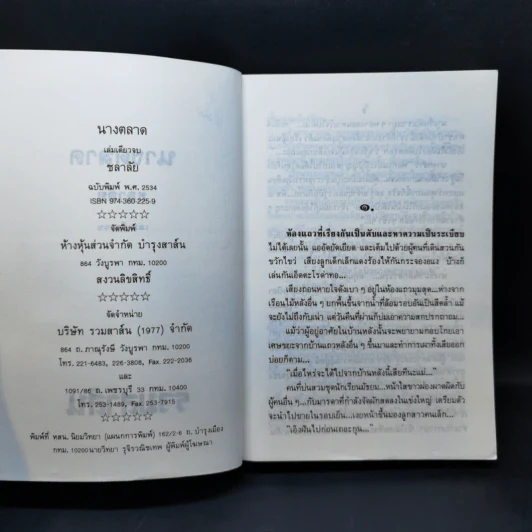 นางตลาด
เล่มเดียวจบ
ชลาลัย
ฉบับพิมพ์ พ.ศ. 2534
ISBN 974-360-225-9
☆☆☆☆☆
จัดพิมพ์
ห้างหุ้นส่วนจำกัด บำรุงสาส์น
864 วังบูรพา กทม. 10200
สงวนลิขสิทธิ์
☆☆☆☆☆
จัดจำหน่าย
บริษัท รวมสาส์น (1977) จำกัด
864 ถ.ภาณุรังษี วังบูรพา กทม. 10200
โทร. 221-6483, 226-3808, Fax, 222-2036
และ
1091/86 ถ.เพชรบุรี 33 กทม. 10400
โทร. 253-1499, Fax 253-7915
☆☆☆☆☆
พิมพ์ที่ หสน. นิยมวิทยา (แผนกการพิมพ์) 162/2-6 ถ.บำรุงเมือง
กทม. 10200 นายวิทยา ผู้พิมพ์ผู้โฆษณา
๑.
ห้องแถวที่เรียงกันเป็นตับและหาความเป็นระเบียบ
ไม่ได้เลยนั้น แออัดยัดเยียด และเต็มไปด้วยผู้คนที่เดินสวนกัน
ขวักไขว่ เสียงลูกเด็กเล็กแดงร้องไห้กันกระจองอแง บ้างก็
เล่นกันเอ็ดตะโรด่าทอ...
เสียงถอนหายใจดังเบา ๆ อยู่ในห้องแถวมุมสุด...ห่างจาก
เรือนไม้หลังอื่น ๆ ยกพื้นขึ้นจากน้ำที่ล้อมรอบอันเป็นสีดำ แม้
จะยังไม่ถึงกับเน่า แต่วันคืนที่ผ่านก็บ่มเอาความสกปรกมาถม...
แม้ว่าผู้อยู่อาศัยในบ้านหลังนั้นจะพยายามกอบโกยเอา
เศษขยะจากบ้านแถวหลังอื่น ๆ ขึ้นมาและทำการเผาทิ้งเสียออก
บ่อยก็ตาม...
"เมื่อไหร่จะได้ไปจากบ้านหลังนี้เสียทีนะแม่..."
คนที่บ่นสวมชุดนักเรียนมัธยม...หน้าใสขาวผ่องผาดผิดกับ
ผู้คนอื่น ๆ...กับมารดาที่กำลังจัดผักสดลงในเข่งใหญ่ เตรียมตัว
จะนำไปขายในรอบเย็น...เงยหน้าขึ้นมองลูกสาวคนเล็ก...
"เอ็งฝันไปก่อนเถอะถุน..."